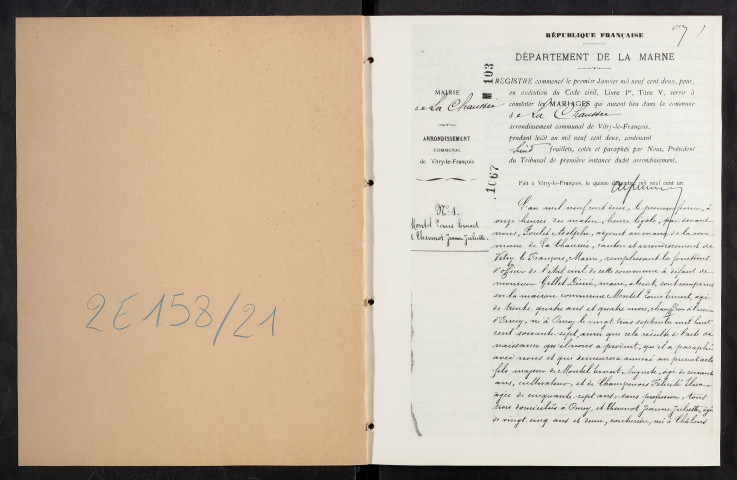 2E158/21
RÉPUBLIQUE FRANÇAISE
DÉPARTEMENT DE LA MARNE
103
1067
MAIRIE
de La Chaussée
ARRONDISSEMENT
COMMUNAL
de Vitry-le-François
REGISTRE commencé le premier Janvier mil neuf cent deux, pour,
en exécution du Code civil, Livre Ier, Titre V, servir à
constater les MARIAGES qui auront lieu dans la commune
de La Chaussée
arrondissement communal de Vitry-le-François,
pendant ledit an mil neuf cent deux, contenant
huit feuillets, cotés et paraphés par Nous, Président
du Tribunal de première instance dudit arrondissement.
Fait à Vitry-le-François, le quinze décembre mil neuf cent un
N° 1.
Montel Louis Ernest
& Thennot Jeanne Juliette.
L'an mil neuf cent deux, le premier, à
onze heures du matin, heure légale, par devant
nous, Poulet Adolphe, adjoint au maire de la com-
mune de La Chaussée, canton et arrondissement de
Vitry le François, Marne, remplissant les fonctions
d'officier de l'état civil de cette commune à défaut de
monsieur Gellet Désiré, maire, absent, sont comparus
en la maison commune Montel Louis Ernest, âgé
de trente quatre ans et quatre mois, à
d'Omey, né à Omey le vingt trois septembre mil huit
cent soixante sept, ainsi que cela résulte de l'acte de
naissance qu'il nous a produit, qu'il a paraphé
avec nous et qui demeurera annexé au présent acte
fils majeur de Montel Ernest Auguste, âgé de soixante
ans, cultivateur, et de Champenois Félicité
âgée de cinquante sept ans, sans profession, tous
trois domiciliés à Omey, et Thennot Jeanne Juliette, âgée
de vingt cinq ans et demi, couturière, née à Châlons